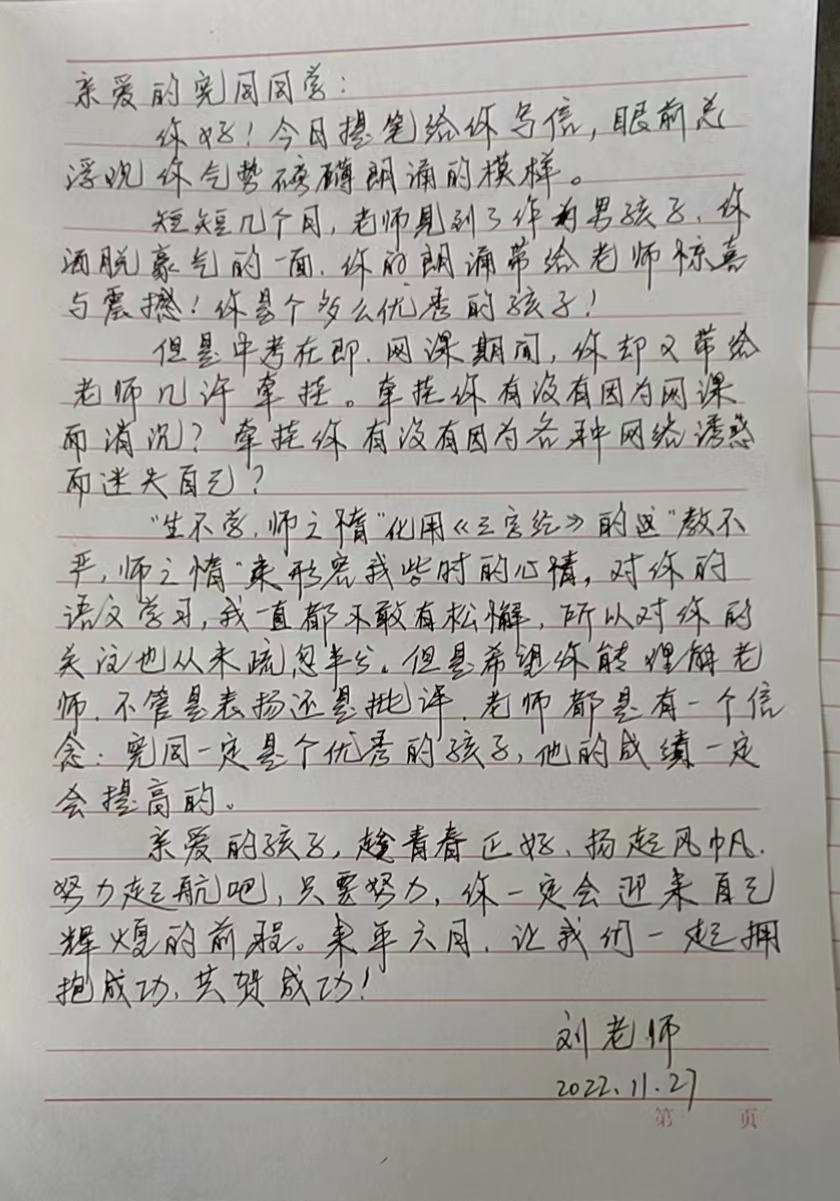 亲爱的宪同同学：
你好！今日提笔给你写信，眼前总
浮现你气势磅礴朗诵的模样。
短短几个月，老师见到了作为男孩子，你
洒脱豪气的一面，你的朗诵带给老师惊喜
与震撼！你是个多么优秀的孩子！
但是中考在即，网课期间，你却又带给
老师几许牵挂。牵挂你有没有因为网课
而消沉？牵挂你有没有因为各种网络诱惑
而迷失自己？
“生不学，师之惰”化用《三字经》的这“教不
严，师之惰”来形容我些时的心情，对你的
语文学习，我一直都不敢有松懈，所以对你的
关注也从未疏忽半分。但是希望你能理解老
师，不管是表扬还是批评，老师都是有一个信
念：宪同一定是个优秀的孩子，他的成绩一定
会提高的。
亲爱的孩子，趁青春正好，扬起风帆，
努力起航吧，只要努力，你一定会迎来自己
辉煌的前程。来年六月，让我们一起拥
抱成功，共贺成功！
刘老师
2022.11.27
第 页